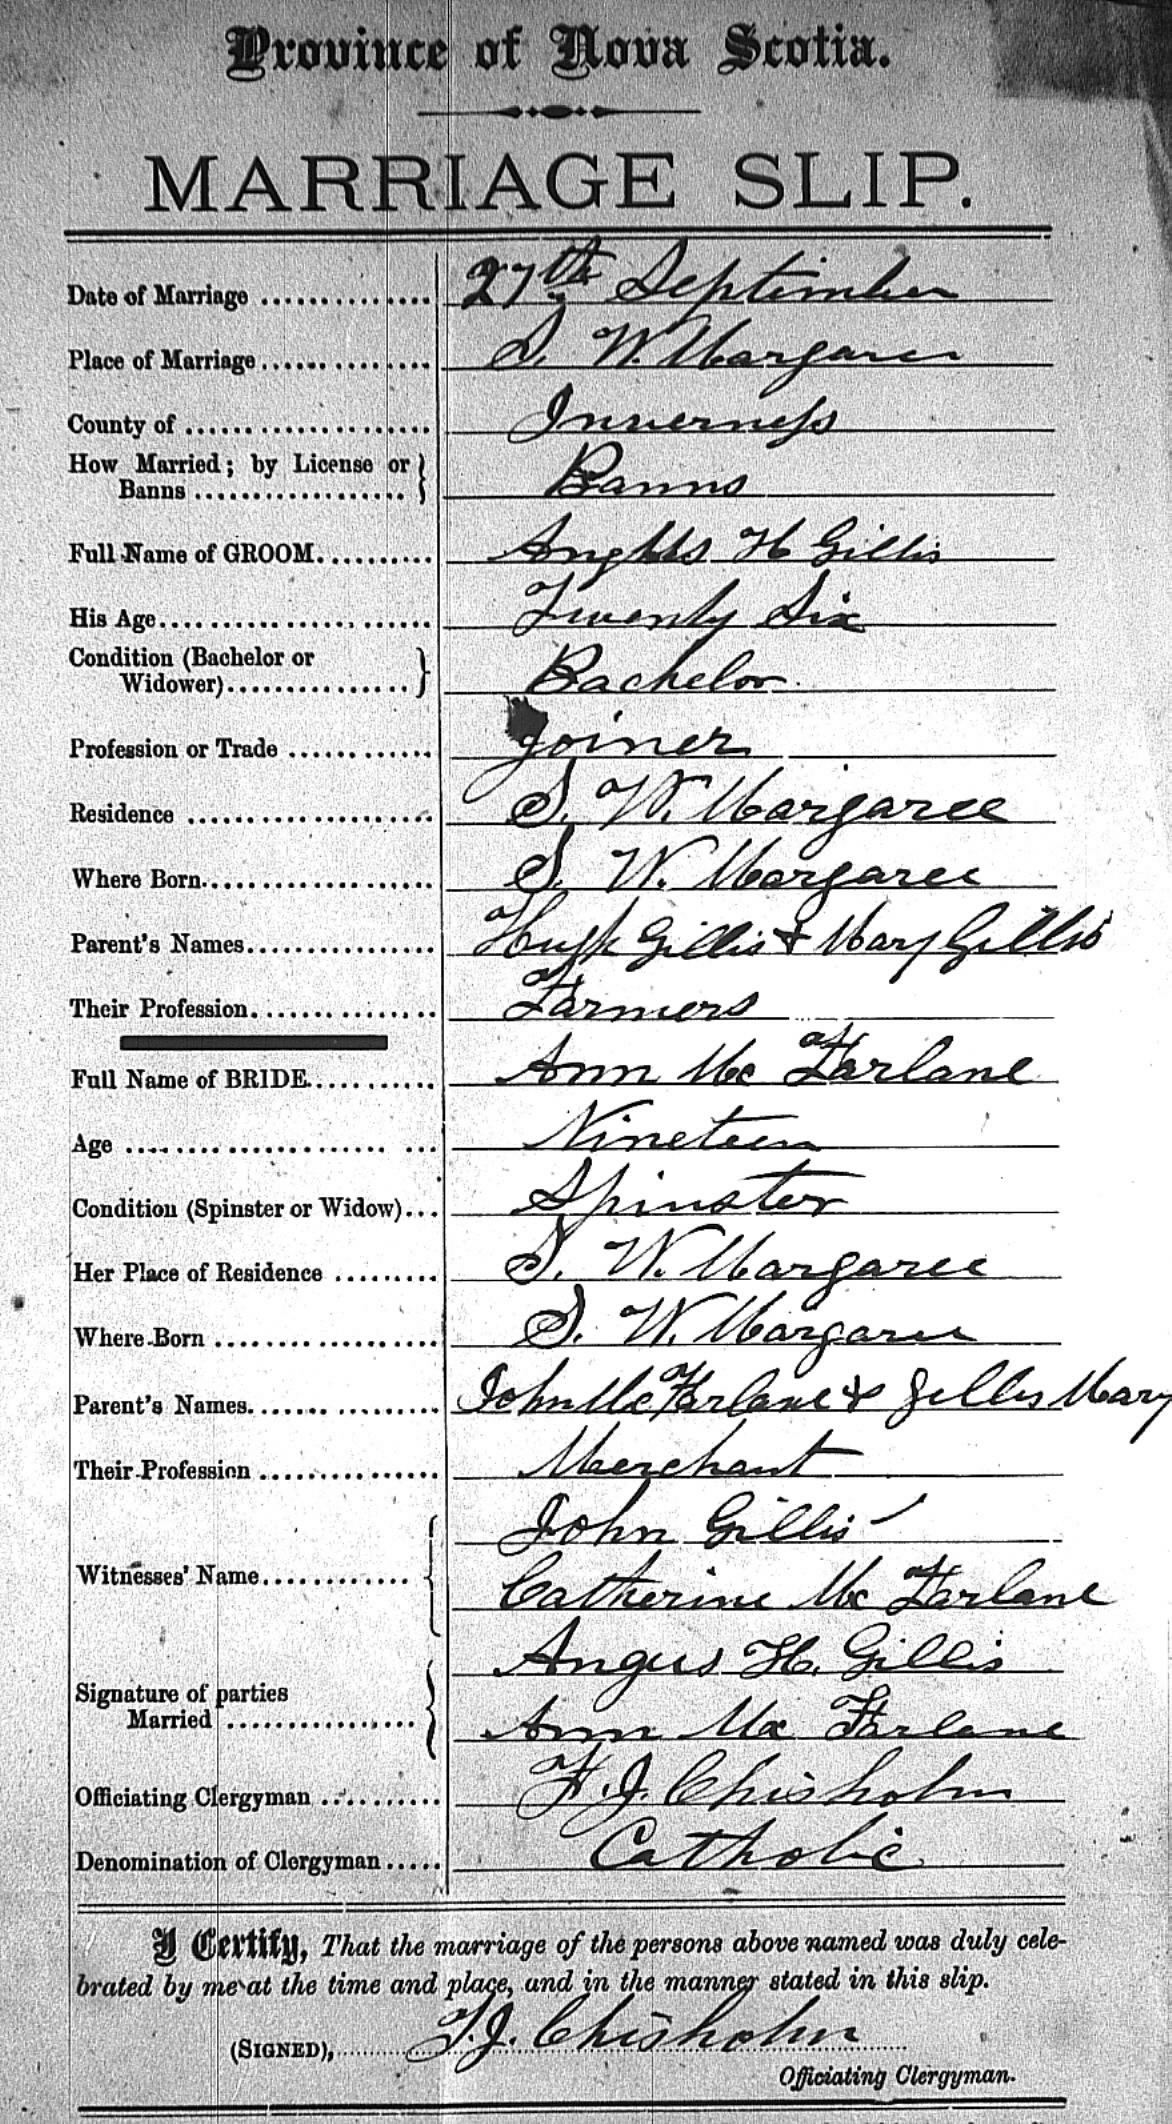 Province of Nova Scotia.
MARRIAGE SLIP.
Date of Marriage .............. 27th September
Place of Marriage .............. S. W. Margaree
County of .............. Inverness
How Married; by License or
Banns .............. Banns
Full Name of GROOM .............. H Gillis
His Age .............. Twenty Six
Condition (Bachelor or
Widower) .............. Bachelor
Profession or Trade .............. Joiner
Residence .............. S. W. Margaree
Where Born .............. S. W. Margaree
Parent's Names .............. Hugh Gillis & Mary Gillis
Their Profession .............. Farmers
Full Name of BRIDE .............. Ann Mc Farlane
Age .............. Nineteen
Condition (Spinster or Widow) ... Spinster
Her Place of Residence ......... S. W. Margaree
Where Born .............. S. W. Margaree
Parent's Names .............. John McFarlane & Gillis Mary
Their Profession .............. Merchant
John Gillis
Witnesses' Name .............. Catherine Mc Farlane
Angus H. Gillis
Signature of parties
Married .............. Ann Mc Farlane
Officiating Clergyman .......... F. J. Chisholm
Denomination of Clergyman ..... Catholic
I Certify, That the marriage of the persons above named was duly cele-
brated by me at the time and place, and in the manner stated in this slip.
(SIGNED), F. J. Chisholm
Officiating Clergyman.